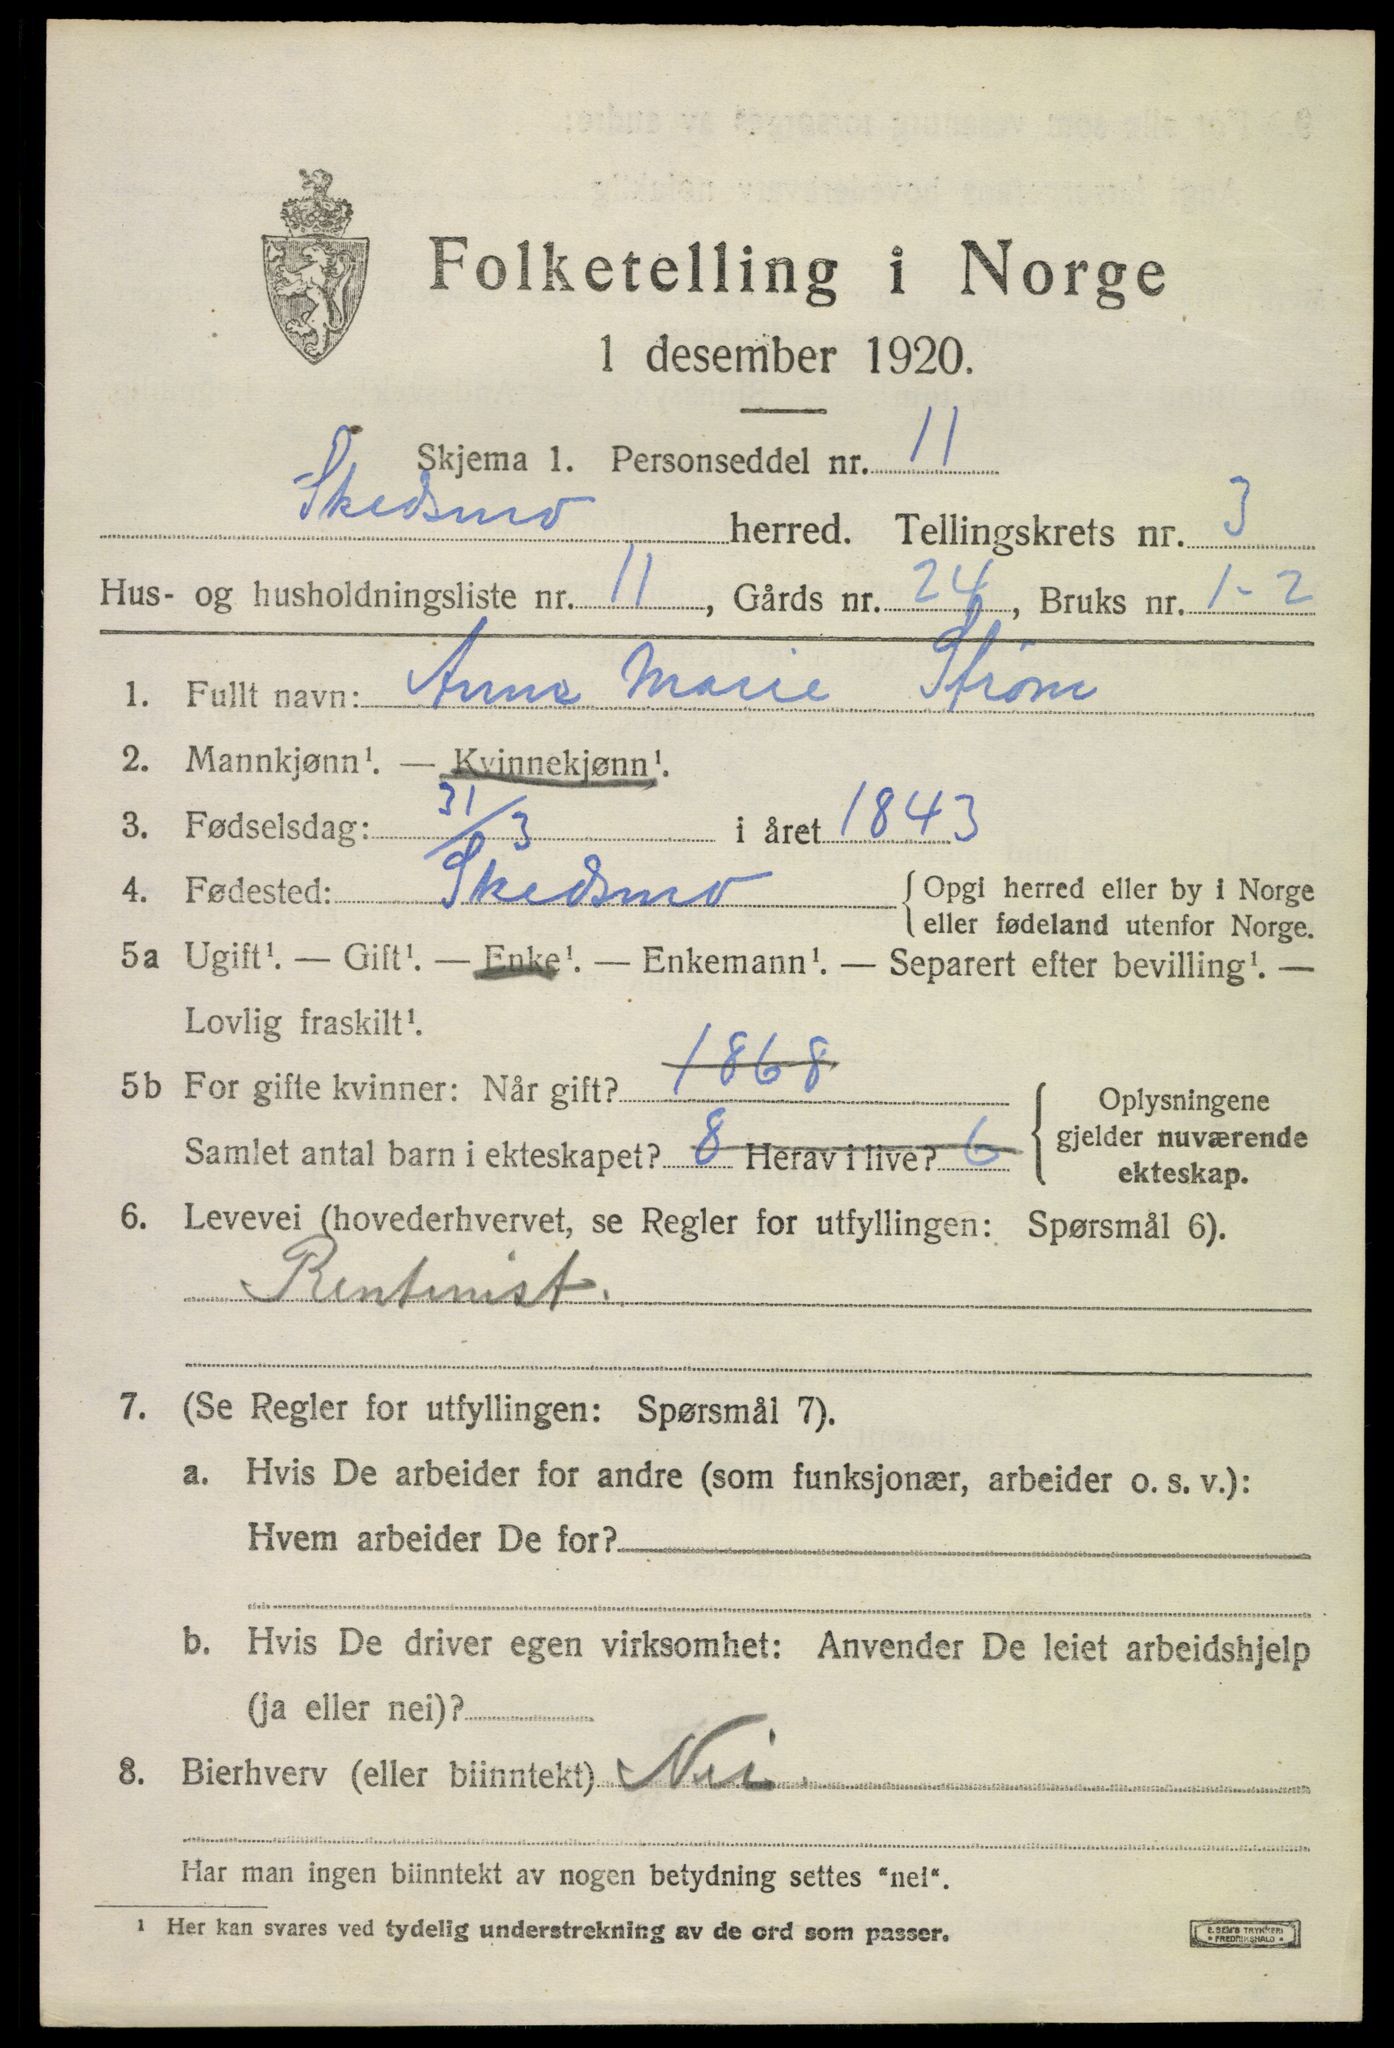 Folketelling i Norge
1 desember 1920.
Skjema 1. Personseddel nr. 11
Skedsmo herred. Tellingskrets nr. 3
Hus- og husholdningsliste nr. 11, Gårds nr. 24, Bruks nr. 1-2
1. Fullt navn: Anna Marie Strøm
2. Mannkjønn¹. — Kvinnekjønn¹.
3. Fødselsdag: 31/3 i året 1843
4. Fødested: Skedsmo {Opgi herred eller by i Norge
eller fødeland utenfor Norge.
5a Ugift¹. — Gift¹. — Enke¹. — Enkemann¹. — Separert efter bevilling¹. —
Lovlig fraskilt¹.
5b For gifte kvinner: Når gift? 1868
Samlet antal barn i ekteskapet? 8 Herav i live? 6
{ Oplysningene
gjelder nuværende
ekteskap.
6. Levevei (hovederhvervet, se Regler for utfyllingen: Spørsmål 6).
Rentenist.
7. (Se Regler for utfyllingen: Spørsmål 7).
a. Hvis De arbeider for andre (som funksjonær, arbeider o. s. v.):
Hvem arbeider De for?
b. Hvis De driver egen virksomhet: Anvender De leiet arbeidshjelp
(ja eller nei)?
8. Bierhverv (eller biinntekt) Nei.
Har man ingen biinntekt av nogen betydning settes "nei".
¹ Her kan svares ved tydelig understrekning av de ord som passer.
E. SEM'S TRYKKERI
• FREDRIKSHALD •